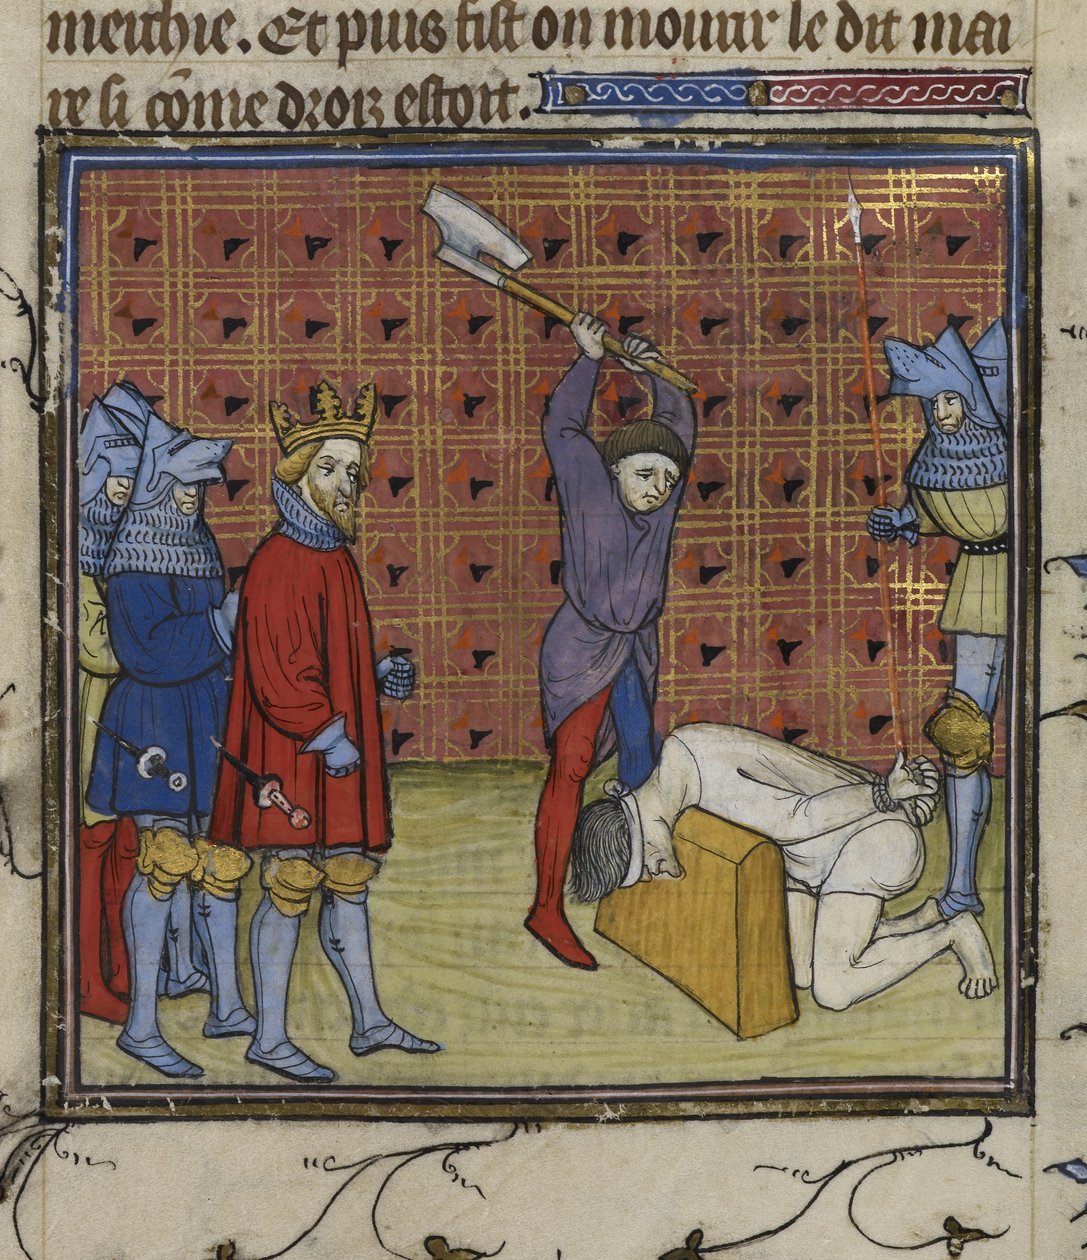 merchie. Et puis fist on mourir le dit mai
re si cõme droiz estoit.